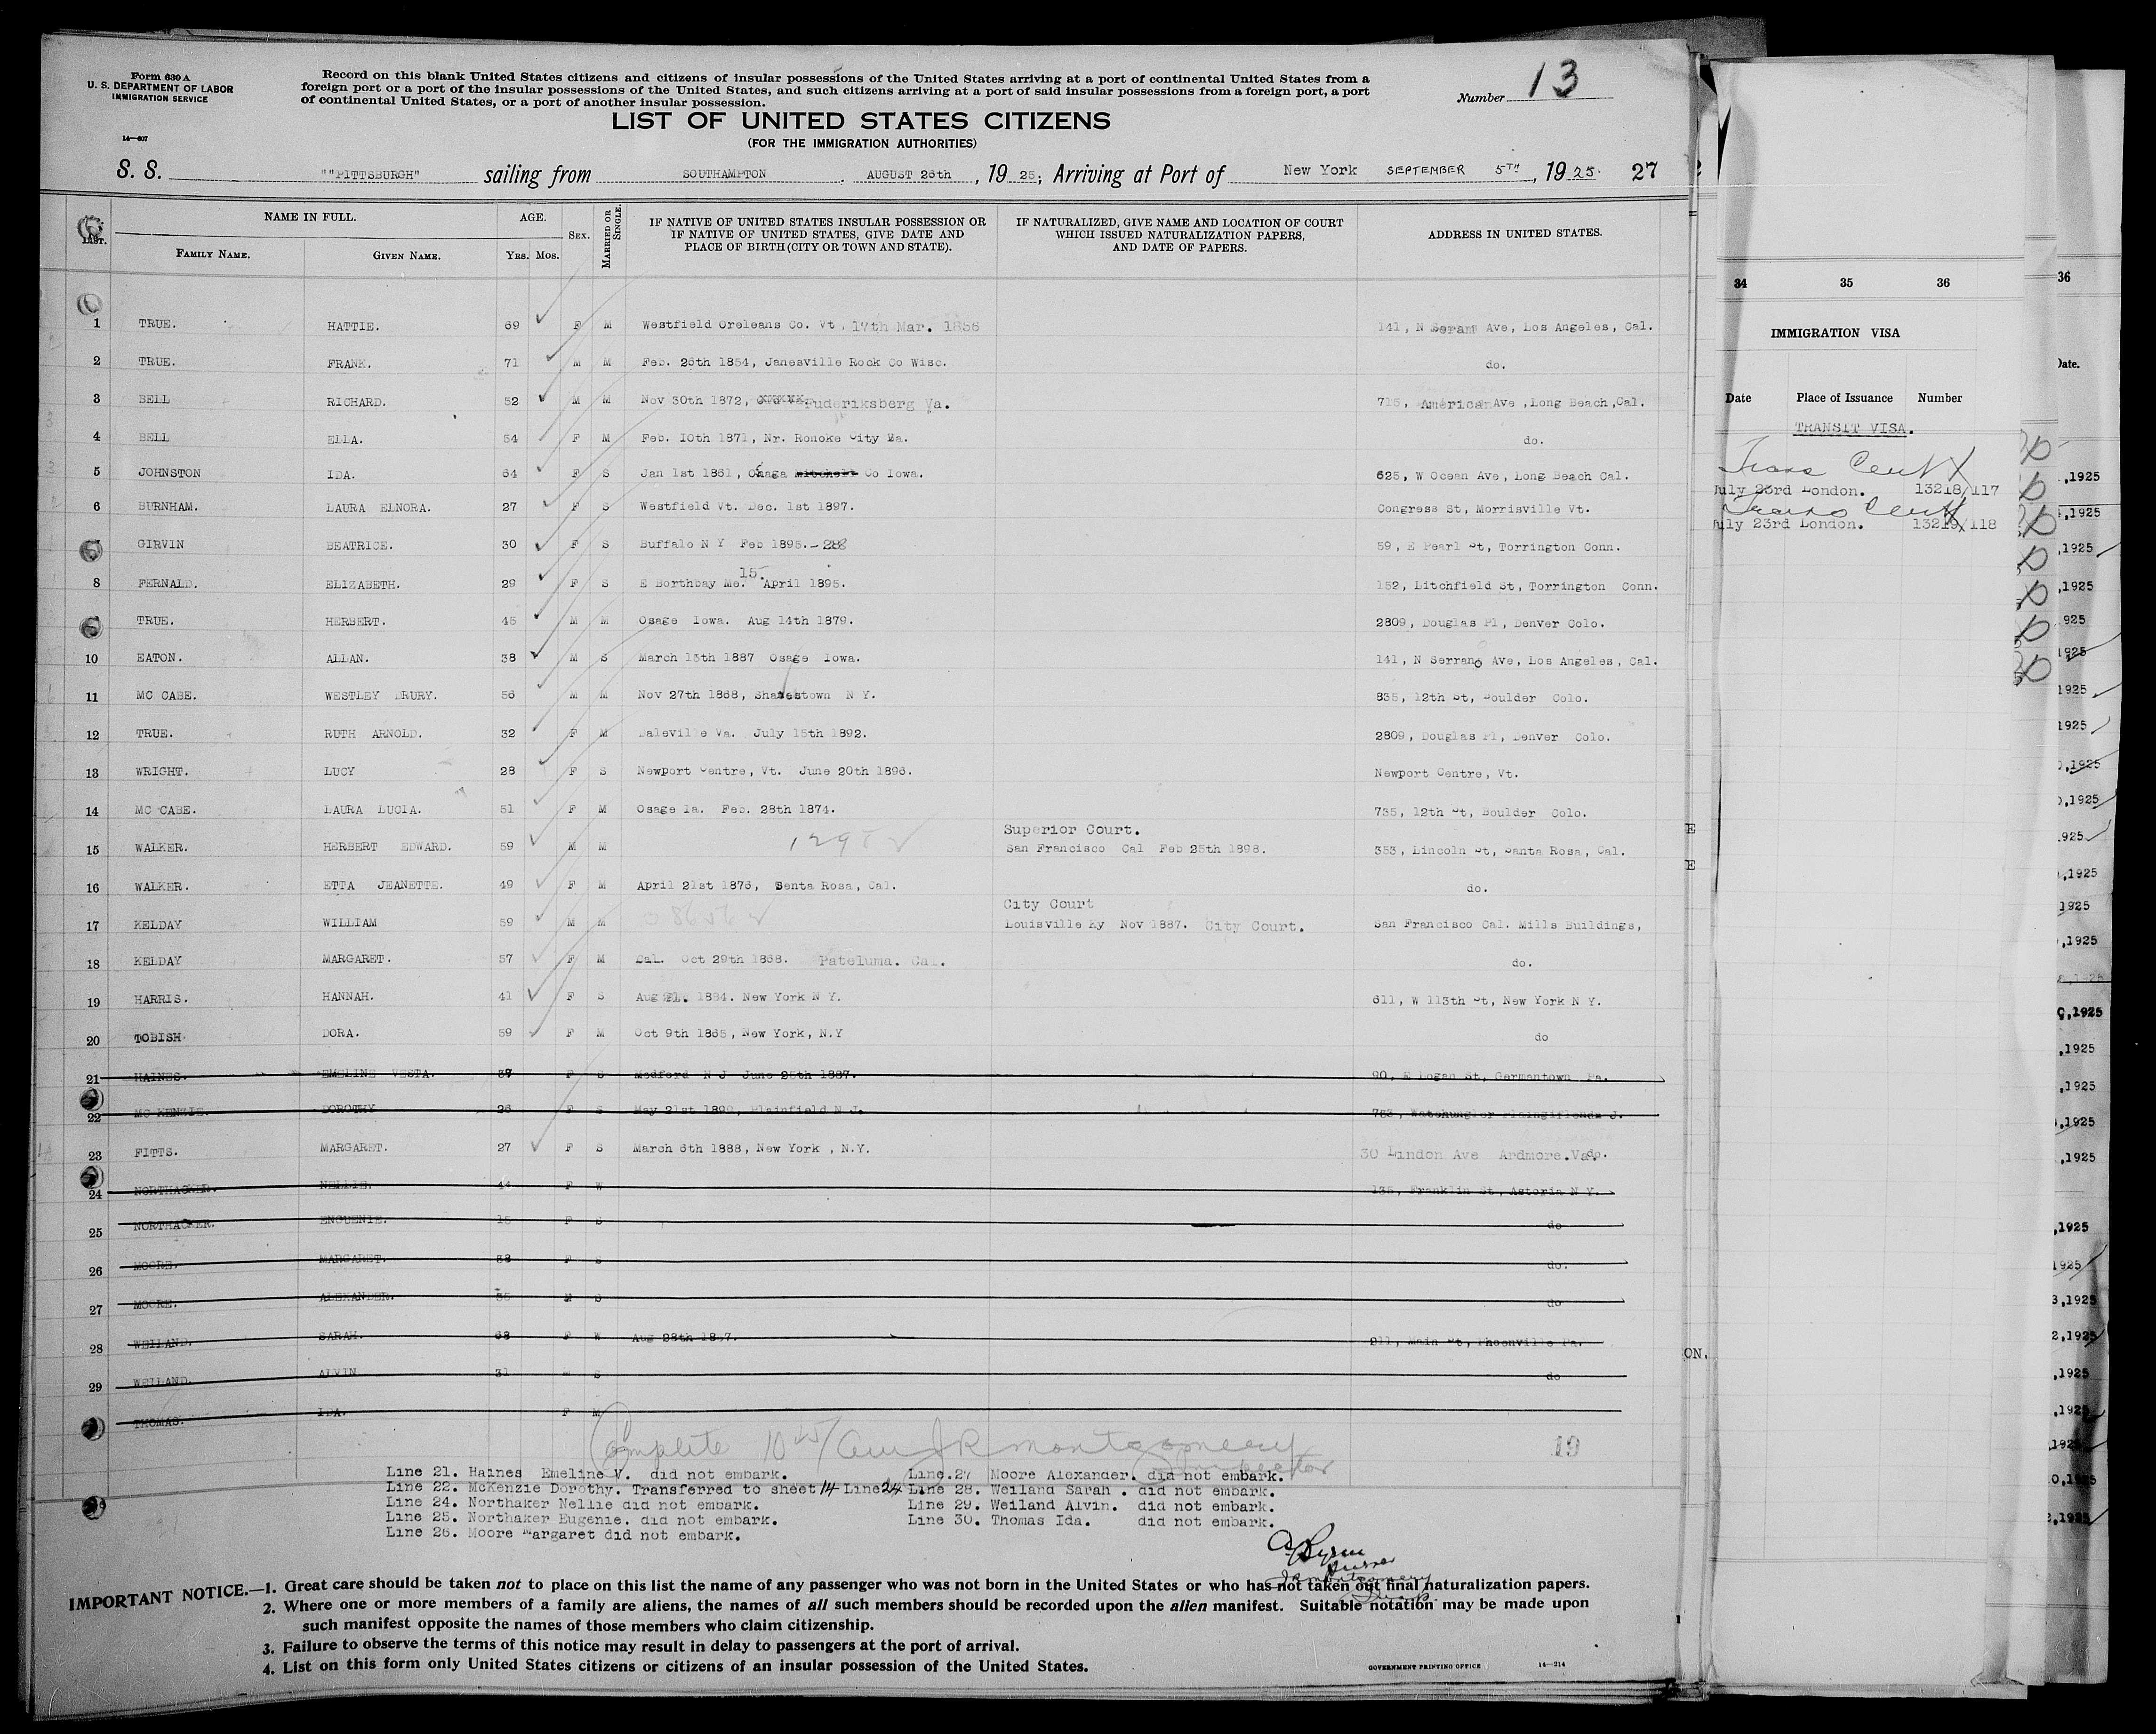 Form 630 A
U. S. DEPARTMENT OF LABOR
IMMIGRATION SERVICE
14—607
Record on this blank United States citizens and citizens of insular possessions of the United States arriving at a port of continental United States from a
foreign port or a port of the insular possessions of the United States, and such citizens arriving at a port of said insular possessions from a foreign port, a port
of continental United States, or a port of another insular possession.
Number 13
LIST OF UNITED STATES CITIZENS
(FOR THE IMMIGRATION AUTHORITIES)
S. S. ""PITTSBURGH" sailing from SOUTHAMPTON . AUGUST 26th , 19 25; Arriving at Port of New York SEPTEMBER 5TH, 19 25. 27
LIST. NAME IN FULL. AGE. SEX. MARRIED OR SINGLE. IF NATIVE OF UNITED STATES INSULAR POSSESSION OR IF NATIVE OF UNITED STATES, GIVE DATE AND PLACE OF BIRTH (CITY OR TOWN AND STATE). IF NATURALIZED, GIVE NAME AND LOCATION OF COURT WHICH ISSUED NATURALIZATION PAPERS, AND DATE OF PAPERS. ADDRESS IN UNITED STATES.
FAMILY NAME. GIVEN NAME. YRS. MOS.
1 TRUE. HATTIE. 69 F M Westfield Oreleans Co. Vt. 17th Mar. 1856 141, N Ave, Los Angeles, Cal.
2 TRUE. FRANK. 71 M M Feb. 26th 1854, Janesville Rock Co Wisc. do.
3 BELL RICHARD. 52 M M Nov 30th 1872, Va. 715, American Ave ,Long Beach,Cal.
4 BELL ELLA. 54 F M Feb. 10th 1871, Nr. Ronoke City Va. do.
5 JOHNSTON IDA. 64 F S Jan 1st 1861, Osage Mitchell Co Iowa. 625, W Ocean Ave, Long Beach Cal.
6 BURNHAM. LAURA ELNORA. 27 F S Westfield Vt. Dec. 1st 1897. Congress St, Morrisville Vt.
7 GIRVIN BEATRICE. 30 F S Buffalo N Y Feb 1895.-28 59, E Pearl St, Torrington Conn.
8 FERNALD. ELIZABETH. 29 F S E Borthbay Me. 15. April 1896. 152, Litchfield St, Torrington Conn.
9 TRUE. HERBERT. 45 M M Osage Iowa. Aug 14th 1879. 2809, Douglas Pl, Denver Colo.
10 EATON. ALLAN. 38 M S March 13th 1887 Osage Iowa. 141, N Serrano Ave, Los Angeles, Cal.
11 MC CABE. WESTLEY DRURY. 56 M M Nov 27th 1868, N Y. 835, 12th St, Boulder Colo.
12 TRUE. RUTH ARNOLD. 32 F M Daleville Va. July 15th 1892. 2809, Douglas Pl, Denver Colo.
13 WRIGHT. LUCY 28 F S Newport Centre, Vt. June 20th 1896. Newport Centre, Vt.
14 MC CABE. LAURA LUCIA. 51 F M Osage Ia. Feb. 28th 1874. 735, 12th St, Boulder Colo.
Superior Court.
15 WALKER. HERBERT EDWARD. 59 M M San Francisco Cal Feb 25th 1898. 353, Lincoln St, Santa Rosa, Cal.
16 WALKER. ETTA JEANETTE. 49 F M April 21st 1876, Senta Rosa, Cal. do.
City Court
17 KELDAY WILLIAM 59 M M Louisville Ky Nov 1887. City Court. San Francisco Cal. Mills Buildings,
18 KELDAY MARGARET. 57 F M Cal. Oct 29th 1868. Pateluma. Cal. do.
19 HARRIS. HANNAH. 41 F S Aug 21. 1884. New York N Y. 611, W 113th St, New York N Y.
20 TOBISH DORA. 59 F M Oct 9th 1865, New York, N.Y do
21 HAINES. EMELINE VESTA. 37 F S Medford N J June 25th 1887. 90, E Logan St, Germantown Pa.
22 MC KENZIE. DOROTHY 26 F S May 21st 1899, Plainfield N J. J.
23 FITTS. MARGARET. 27 F S March 6th 1888, New York , N.Y. 30 Lindon Ave Ardmore.Va. do.
24 NORTHACKER. NELLIE. 44 F W 135, Franklin St, Astoria N Y.
25 NORTHACKER. ENGUENIE. 15 F S do
26 MOORE. MARGARET. 38 F S do.
27 MOORE. ALEXANDER. 36 M S do
28 WEILAND. SARAH. 68 F W Aug 28th 1857. 211, Main St, Phoenville Pa.
29 WEILAND. ALVIN 31 S do
THOMAS. IDA. F M
Complete J R Montgomery
Inspector
19
Line 21. Haines Emeline V. did not embark. Line.27 Moore Alexander. did not embark.
Line 22. McKenzie Dorothy. Transferred to sheet 14 Line 24 Line 28. Weiland Sarah . did not embark.
Line 24. Northaker Nellie did not embark. Line 29. Weiland Alvin. did not embark.
Line 25. Northaker Eugenie. did not embark. Line 30. Thomas Ida. did not embark.
Line 26. Moore Margaret did not embark.
Purser
J R Montgomery
IMPORTANT NOTICE.—1. Great care should be taken not to place on this list the name of any passenger who was not born in the United States or who has not taken out final naturalization papers.
2. Where one or more members of a family are aliens, the names of all such members should be recorded upon the alien manifest. Suitable notation may be made upon
such manifest opposite the names of those members who claim citizenship.
3. Failure to observe the terms of this notice may result in delay to passengers at the port of arrival.
4. List on this form only United States citizens or citizens of an insular possession of the United States.
GOVERNMENT PRINTING OFFICE 14—214
34 35 36
IMMIGRATION VISA
Date Place of Issuance Number
TRANSIT VISA.
July 23rd London. 13218/117
July 23rd London. 13219/118
36
Date.